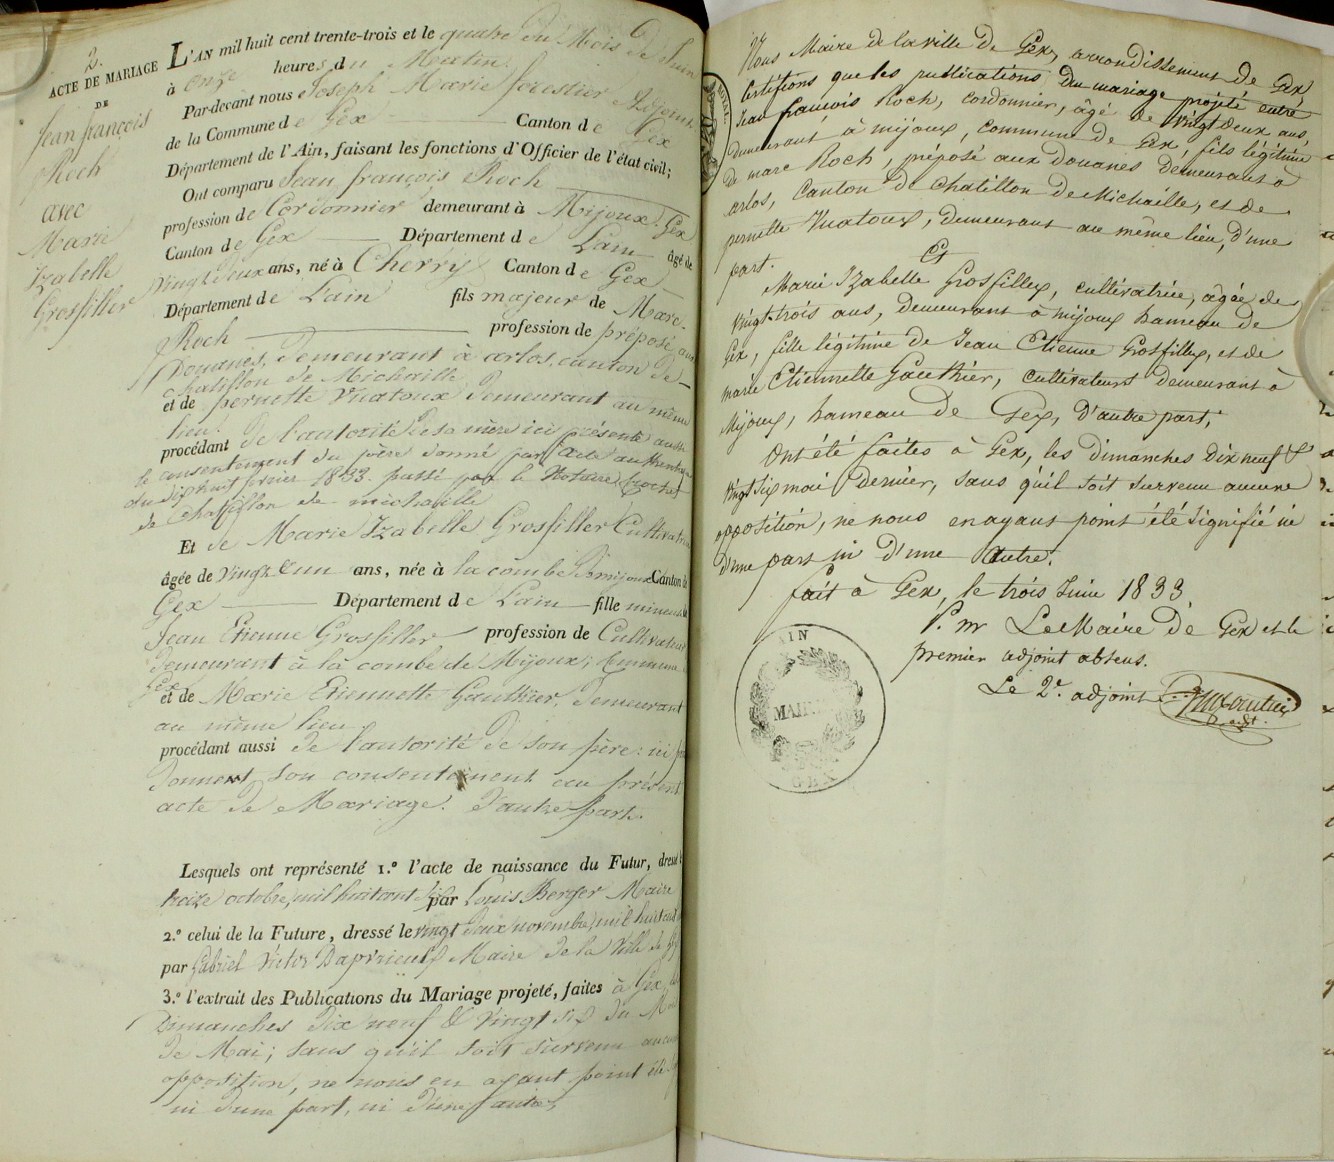 2.
ACTE DE MARIAGE
DE
Jean françois
Roch
avec
Marie
Izabelle
Grosfiller
L'AN mil huit cent trente-trois et le quatre du Mois de Juin
à onze heures du Matin.
Par-devant nous Joseph Marie forestier Adjoint
de la Commune de Gex Canton de Gex
Département de l'Ain, faisant les fonctions d'Officier de l'état civil;
Ont comparu Jean françois Roch
profession de Cordonnier demeurant à Mijoux. Gex
Canton de Gex Département de Lain âgé de
Vingt deux ans, né à Cherry Canton de Gex
Département de Lain fils majeur de Marc
Roch profession de préposé aux
Douanes, demeurant à arlos, canton de
chatillon de Michaille
et de pernette Vuatoux demeurant au même
lieu.
procédant de l'autorité de sa mère ici présente aussi
le consentement du père donné par acte authentique
du dix huit février 1833. passé par le Notaire
de Chatillon de michaille
Et de Marie Izabelle Grosfiller Cultivatrice
âgée de Vingt & un ans, née à la combe de mijoux Canton de
Gex Département de Lain fille mineure de
Jean Etienne Grosfiller profession de Cultivateur
demeurant à la combe de Mijoux, Commune
Gex
et de Marie Etiennette Gauthier, demeurant
au même lieu
procédant aussi de l'autorité de son père: ici
donnent son consentement au présent
acte de Mariage. d'autre part.
Lesquels ont représenté 1.º l'acte de naissance du Futur, dressé
treize octobre, mil huit cent dix par Louis Berger Maire
2.º celui de la Future, dressé le vingt deux novembre, mil huit cent
par Gabriel Victor Maire de la Ville de Gex
3.º l'extrait des Publications du Mariage projeté, faites à Gex, les
Dimanches dix neuf & Vingt six du Mois
de Mai; sans qu'il soit survenu aucune
opposition, ne nous en ayant point été
ni d'une part, ni d'une autre,
Nous Maire de la ville de Gex, arrondissement de Gex,
Certifions que les publications du mariage projeté entre
Jean françois Roch, cordonnier, âgé de vingt deux ans,
demeurant à mijoux, commune de Gex, fils légitime
de marc Roch, préposé aux Douanes demeurant à
arlos, Canton de Chatillon de Michaille, et de
pernette Vuatoux, demeurant au même lieu, d'une
part.
Et
Marie Izabelle Grosfillex, cultivatrice, âgée de
vingt-trois ans, demeurant à mijoux hameau de
Gex, fille légitime de Jean Etienne Grosfillex, et de
marie Etiennette Gauthier, cultivateurs demeurant à
Mijoux, hameau de Gex, d'autre part,
Ont été faites à Gex, les dimanches dix neuf &
vingt six mai dernier, sans qu'il soit survenu aucune
opposition, ne nous en ayant point été signifié ni
d'une part ni d'une autre.
fait à Gex, le trois Juin 1833
P. mr Le Maire de Gex et le
premier adjoint absens.
Le 2e. adjoint
AIN
MAIRIE
GEX
ROYAL